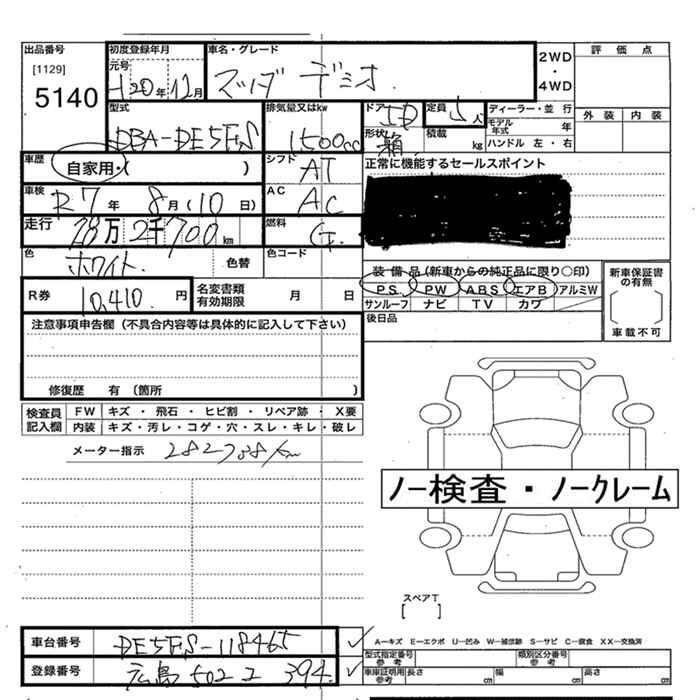 出品番号 初度登録年月 車名・グレード 2WD 評価点
[1129] 元号
5140 H20年12月 マツダ デミオ 4WD
型式 排気量又はkw ドア 5D 定員 5人 ディーラー・並行 外装 内装
DBA-DE5FS 1500cc 形状 箱 積載 kg モデル年式 年
ハンドル 左・右
車歴 自家用・( ) シフト AT 正常に機能するセールスポイント
車検 R7年 8月(10日) AC AC
走行 28万2千700km 燃料 G
色 ホワイト 色替 色コード
装備品(新車からの純正品に限り○印) 新車保証書の有無
R券 10,410円 名変書類有効期限 月 日 PS PW ABS エアB アルミW
サンルーフ ナビ TV カワ 車載不可
注意事項申告欄(不具合内容等は具体的に記入して下さい) 後日品
修復歴 有 (箇所 )
検査員記入欄 FW キズ・飛石・ヒビ割・リペア跡・X要
内装 キズ・汚レ・コゲ・穴・スレ・キレ・破レ
メーター指示 282708km
ノー検査・ノークレーム
スペアT
[ ]
車台番号 DE5FS-118465
A-キズ E-エクボ U-凹み W-補修跡 S-サビ C-腐食 XX-交換済
型式指定番号 参考 類別区分番号 参考
登録番号 広島 502 ユ 394
車庫証明用 参考 長さ cm 幅 cm 高さ cm